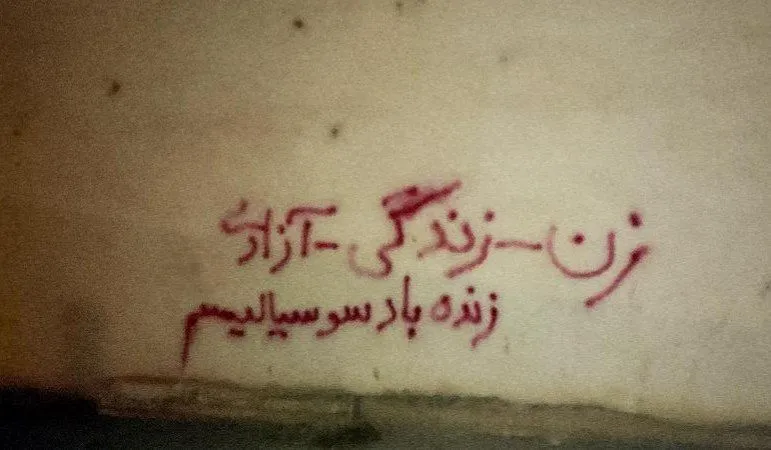 زن - زندگی - آزادی
زنده باد سوسیالیسم